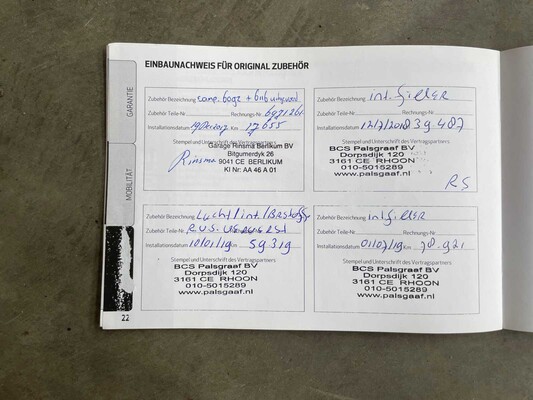 EINBAUNACHWEIS FÜR ORIGINAL ZUBEHÖR
GARANTIE
MOBILITÄT
Zubehör Bezeichnung comp. 6092 +
Zubehör Teile-Nr. Rechnungs-Nr.
Installationsdatum Km 17 655
Stempel und Unterschrift des Vertragspartners
Garage Rinsma Berlikum BV
Bitgumerdyk 26
Rinsma 9041 CE BERLIKUM
KI Nr: AA 46 A 01
Zubehör Bezeichnung int. filler
Zubehör Teile-Nr. Rechnungs-Nr.
Installationsdatum 12/7/2018 39 487
Stempel und Unterschrift des Vertragspartners
BCS Palsgraaf BV
Dorpsdijk 120
3161 CE RHOON
010-5015289
www.palsgaaf.nl
RS
Zubehör Bezeichnung Lucht/int/
Zubehör Teile-Nr.
Installationsdatum 10/01/19 Km 59319
Stempel und Unterschrift des Vertragspartners
BCS Palsgraaf BV
Dorpsdijk 120
3161 CE RHOON
010-5015289
www.palsgaaf.nl
Zubehör Bezeichnung int filler
Zubehör Teile-Nr. Rechnungs-Nr.
Installationsdatum 01/07/19 Km 78.921
Stempel und Unterschrift des Vertragspartners
BCS Palsgraaf BV
Dorpsdijk 120
3161 CE RHOON
010-5015289
www.palsgaaf.nl
22